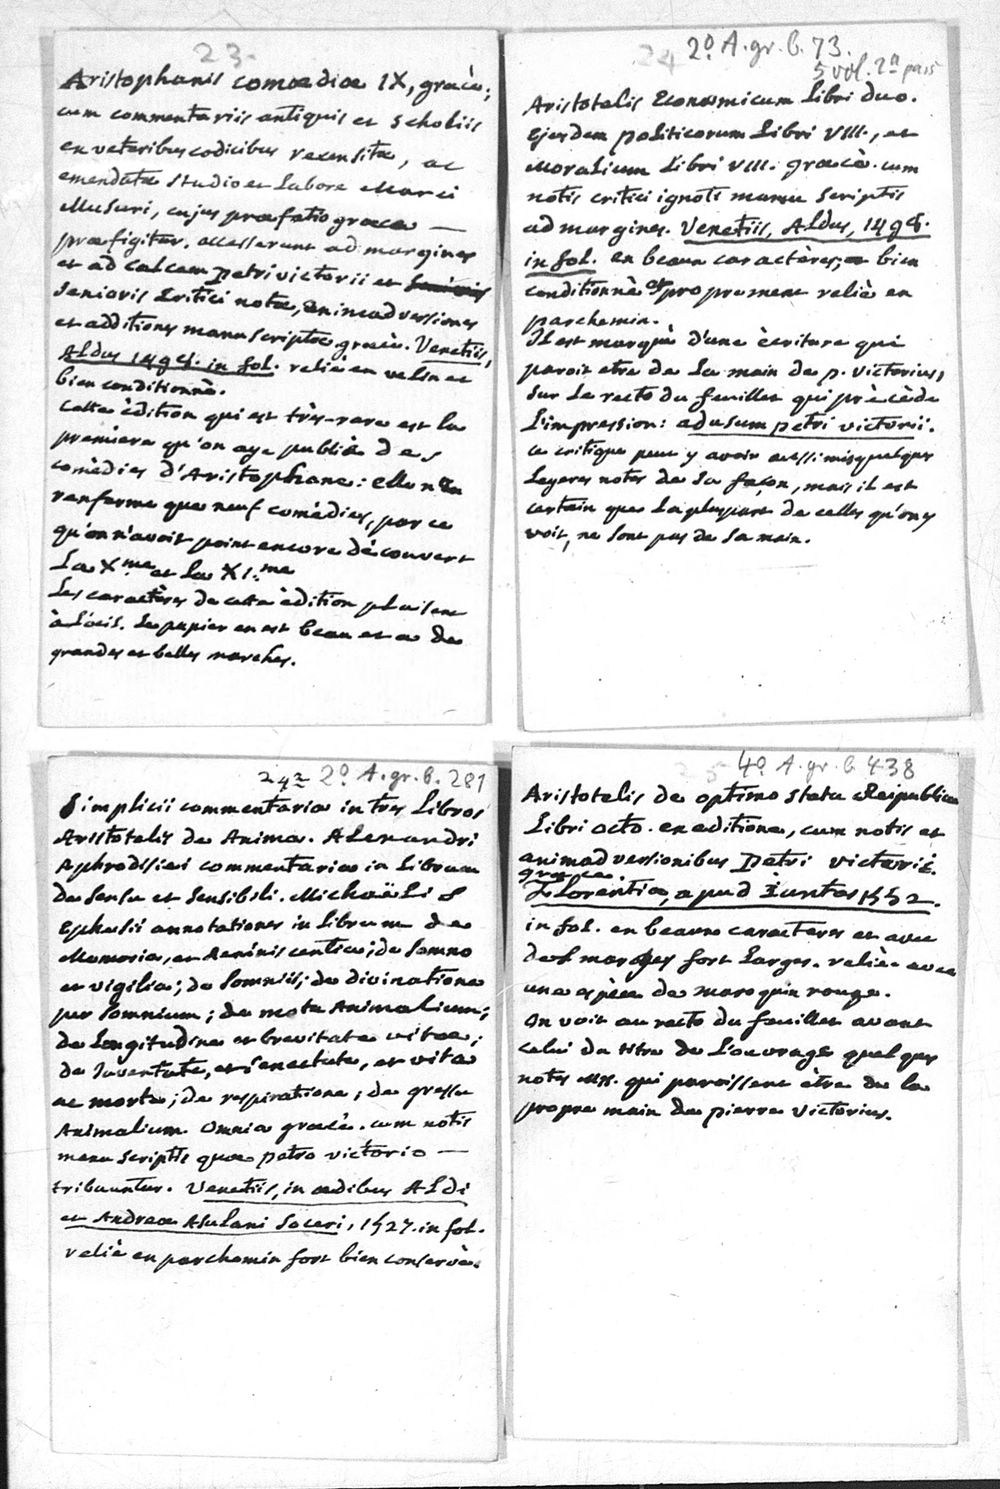 23.
Aristophanis comœdiæ IX, græcè;
cum commentariis antiquis et Scholiis
ex veteribus codicibus recensitæ, ac
emendatæ Studio et Labore Marci
Musuri, cujus præfatio græca —
præfigitur. accesserunt ad margines
et ad calcem petri victorii et
Senioris Critici notæ, animadversiones
et additiones manuscriptæ græcè. Venetiis,
Aldus 1498. in fol. relié en velin et
bien conditionnè.
Cette èdition qui est très-rare est la
premiere qu'on aye publiée des
comèdies d'Aristophane: elle n'en
renferme que neuf comèdies, par ce
qu'on n'avoit point encore dècouvert
La X.me et La XI.me
Les caractères de cette èdition plaisent
à L'œil. Le papier en est beau et a de
grandes et belles marches.
24 2o A.gr.b. 73.
5 vol. 2a pars
Aristotelis Economicum Libri duo.
Ejusdem politicorum Libri VIII., et
Moralium Libri VIII. græcè. cum
notis critici ignoti manu Scriptis
ad margines. Venetiis, Aldus, 1498.
in fol. en beaux caractères, bien
conditionnè et proprement reliè en
parchemin.
Il est marqué d'une ècriture qui
paroit etre de La main de p. victorius,
Sur Le recto du feuillet qui prècède
L'impression: ad usum petri victorii.
ce critique peut y avoir aussi mis quelques
Legeres notes de Sa façon, mais il est
certain que La pluspart de celles qu'on y
voit, ne Sont pas de Sa main.
24a 2o A.gr.b. 281
Simplicii commentaria in tres Libros
Aristotelis de Anima. Alexandri
Aphrodisiei commentaria in Librum
de Sensu et Sensibili. Michaëlis
Ephesii annotationes in Librum de
Memoria, et Reminiscentia; de Somno
et vigilia; de Somniis; de divinatione
per Somnium; de motu Animalium;
de Longitudine et brevitate vitæ;
de Juventute, et Senectute, et vita
ac morte; de respiratione; de gressu
Animalium omnia græcè. cum notis
manu Scriptis quæ petro victorio —
tribuuntur. Venetiis, in ædibus Aldi
et Andreæ Asulani Soceri, 1527. in fol.
relié en parchemin fort bien conservè.
25 4o A.gr.b. 438
Aristotelis de optimo Statu Reipublicæ
Libri octo. ex editione, cum notis et
animadversionibus petri victorii.
græce.
Florentiæ, apud Juntas 1552.
in fol. en beaux caracteres et avec
des marges fort Larges. reliè avec
une espèce de maroquin rouge.
on voit au recto du feuillet avant
celui du titre de L'ouvrage quelques
notes MSS. qui paroissent ètre de la
propre main de pierre victorius.